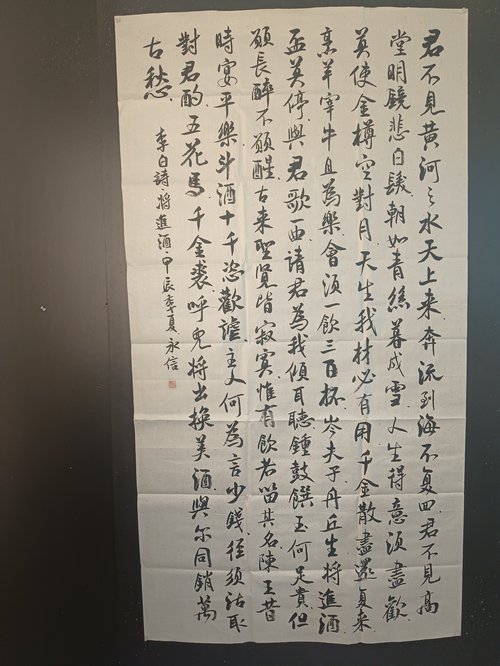 君不見黃河之水天上来奔流到海不复回君不見高
堂明鏡悲白髮朝如青絲暮成雪人生得意須盡歡
莫使金樽空對月天生我材必有用千金散盡還复来
烹羊宰牛且為樂會須一飲三百杯岑夫子丹丘生將進酒
盃莫停與君歌一曲請君為我傾耳聽鍾鼓饌玉何足貴但
願長醉不願醒古来聖賢皆寂寞惟有飲者留其名陳王昔
時宴平樂斗酒十千恣歡謔主人何為言少錢徑須沽取
對君酌五花馬千金裘呼兒將出換美酒與尔同銷萬
古愁
李白詩將進酒甲辰季夏永信